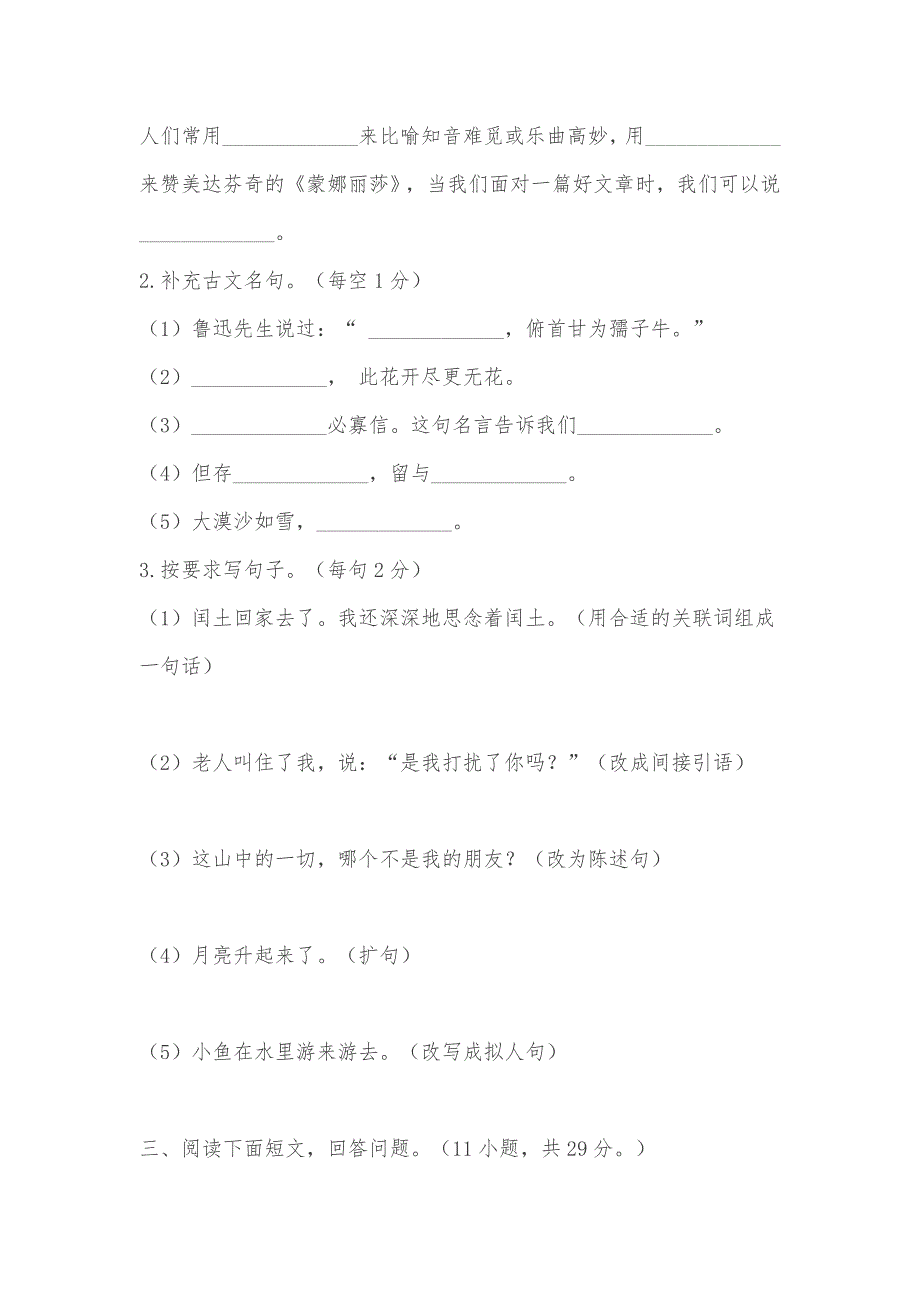 人们常用_____________来比喻知音难觅或乐曲高妙，用_____________
来赞美达芬奇的《蒙娜丽莎》，当我们面对一篇好文章时，我们可以说
_____________。
2.补充古文名句。（每空1分）
（1）鲁迅先生说过：“ _____________，俯首甘为孺子牛。”
（2）_____________， 此花开尽更无花。
（3）_____________必寡信。这句名言告诉我们_____________。
（4）但存_____________，留与_____________。
（5）大漠沙如雪，_____________。
3.按要求写句子。（每句2分）
（1）闰土回家去了。我还深深地思念着闰土。（用合适的关联词组成
一句话）
（2）老人叫住了我，说：“是我打扰了你吗？”（改成间接引语）
（3）这山中的一切，哪个不是我的朋友？（改为陈述句）
（4）月亮升起来了。（扩句）
（5）小鱼在水里游来游去。（改写成拟人句）
三、阅读下面短文，回答问题。（11小题，共29分。）